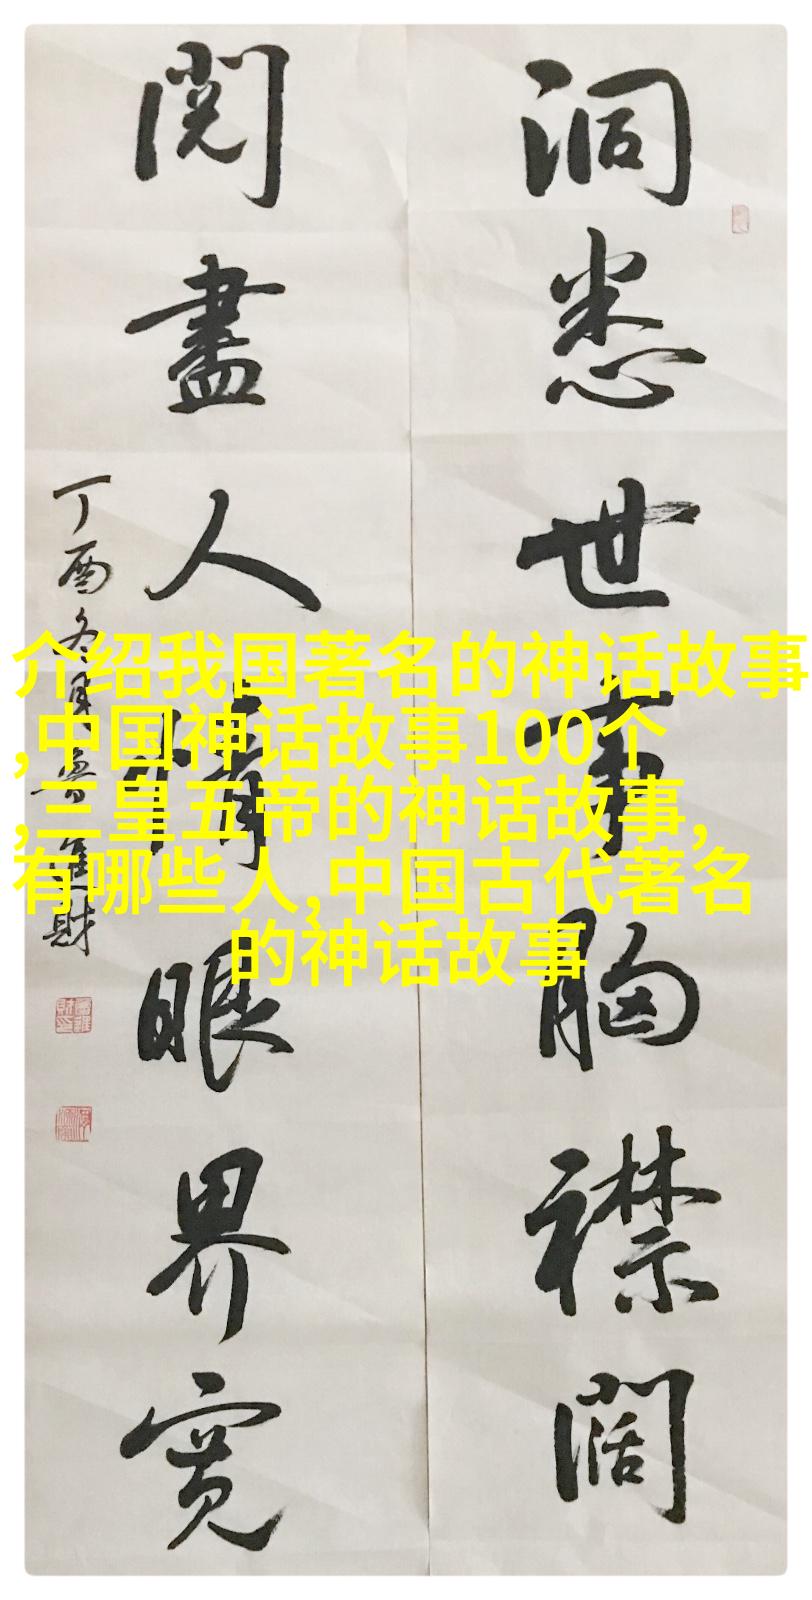 洞悉世事胸襟阔
阅尽人情眼界宽
丁酉冬月鲁进财
介绍我国著名的神话故事
,中国神话故事100个
,三皇五帝的神话故事,
有哪些人,中国古代著名
的神话故事